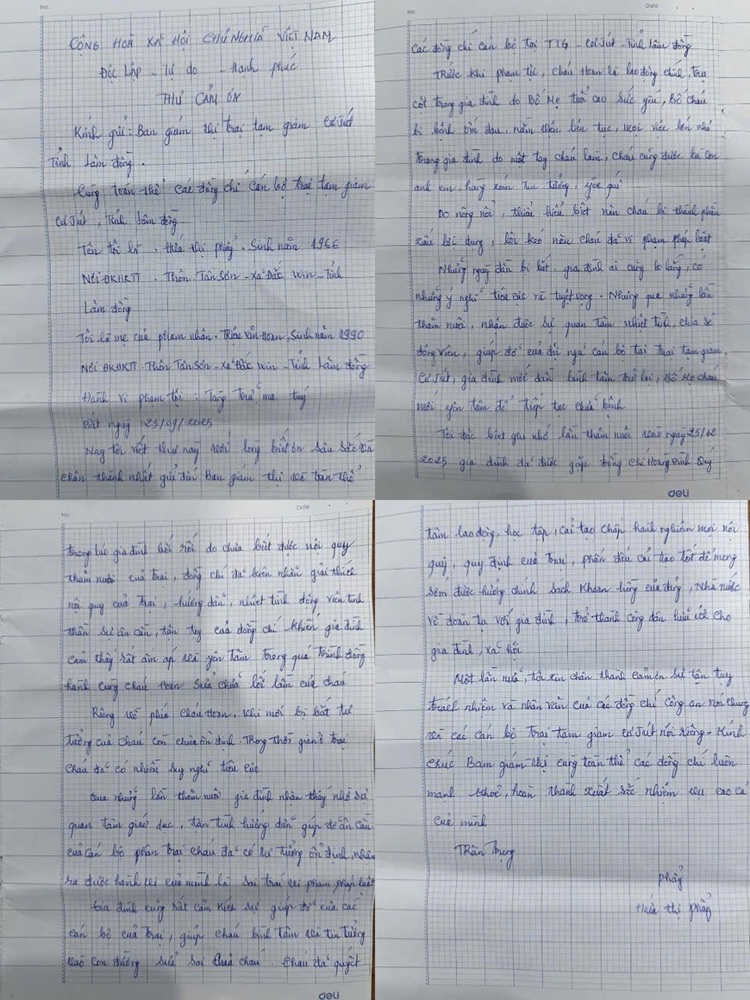 CỘNG HOÀ XÃ HỘI CHỦ NGHĨA VIỆT NAM
Độc Lập - Tự do - Hạnh phúc
THƯ CẢM ƠN
Kính gửi: Ban giám thị trại tạm giam Cư Jút
Tỉnh Lâm đồng.
Cùng toàn thể các đồng chí cán bộ trại tạm giam
Cư Jút, Tỉnh Lâm đồng
Tên tôi là: Hứa thị phẩy. Sinh năm 1966
Nơi ĐKHKTT. Thôn Tân Sơn - xã Đắc Win - Tỉnh
Lâm đồng
Tôi là mẹ của phạm nhân. Triệu Văn Hoan, Sinh năm 1990
Nơi ĐKHKTT. Thôn Tân Sơn - xã Đắc Win - Tỉnh Lâm đồng
Hành vi phạm tội: Tàng Trữ ma tuý
Bắt ngày 23/09/2025
Nay tôi viết thư này với lòng biết ơn sâu sắc và
chân thành nhất gửi đến Ban giám thị và toàn thể
Các đồng chí cán bộ tại TTG - Cư Jút - Tỉnh Lâm đồng
Trước khi phạm tội, cháu Hoan là lao động chính, trụ
cột trong gia đình do Bố Mẹ tuổi cao sức yếu, Bố cháu
bị bệnh ốm đau, nằm viện liên tục, mọi việc lớn nhỏ
trong gia đình do một tay cháu làm, cháu cũng được bà con
anh em, hàng xóm tin tưởng, yêu quí
Do nông nổi, thiếu hiểu biết nên cháu bị thành phần
xấu lợi dụng, lôi kéo nên cháu đã vi phạm pháp luật
Những ngày đầu bị bắt, gia đình ai cũng lo lắng, có
những ý nghĩ tiêu cực và tuyệt vọng. Nhưng qua những lần
thăm nuôi, nhận được sự quan tâm nhiệt tình, chia sẻ
động viên, giúp đỡ của đội ngũ cán bộ tại trại tạm giam
Cư Jút, gia đình mới dần bình tâm trở lại, Bố Mẹ cháu
mới yên tâm để tiếp tục chữa bệnh
Tôi đặc biệt ghi nhớ lần thăm nuôi vào ngày 25/12
2025 gia đình đã được gặp đồng chí Hoàng Đình Quý
trong lúc gia đình bối rối do chưa biết được nội quy
thăm nuôi của trại, đồng chí đã kiên nhẫn giải thích
nội quy của Trại, hướng dẫn, nhiệt tình động viên tinh
thần sự ân cần, tận tụy của đồng chí khiến gia đình
cảm thấy rất ấm áp và yên tâm trong quá trình đồng
hành cùng cháu Hoan sửa chữa lỗi lầm của cháu
Riêng về phía Cháu Hoan. Khi mới bị bắt tư
tưởng của cháu còn chưa ổn định Trong thời gian ở trại
cháu đã có nhiều suy nghĩ tiêu cực
Qua những lần thăm nuôi gia đình nhận thấy nhờ sự
quan tâm giáo dục, tận tình hướng dẫn giúp đỡ ân cần
của cán bộ phân trại cháu đã có tư tưởng ổn định, nhận
ra được hành vi của mình là sai trái vi phạm pháp luật
Gia đình cũng rất cảm kích sự giúp đỡ của các
cán bộ của trại, giúp cháu bình tâm và tin tưởng
vào con đường sửa sai của cháu. Cháu đã quyết
tâm lao động, học tập, cải tạo chấp hành nghiêm mọi nội
quy, quy định của trại, phấn đấu cải tạo tốt để mong
sớm được hưởng chính sách khoan hồng của đảng, Nhà nước
về đoàn tụ với gia đình, trở thành công dân hữu ích cho
gia đình, xã hội
Một lần nữa, tôi xin chân thành cảm ơn sự tận tụy
trách nhiệm và nhân văn của các đồng chí công an nói chung
và các cán bộ Trại tạm giam Cư Jút nói riêng - Kính
chúc Ban giám thị cùng toàn thể các đồng chí luôn
mạnh khoẻ, hoàn thành xuất sắc nhiệm vụ cao cả
của mình
Trân Trọng
Phẩy
Hứa thị phẩy
deli
deli